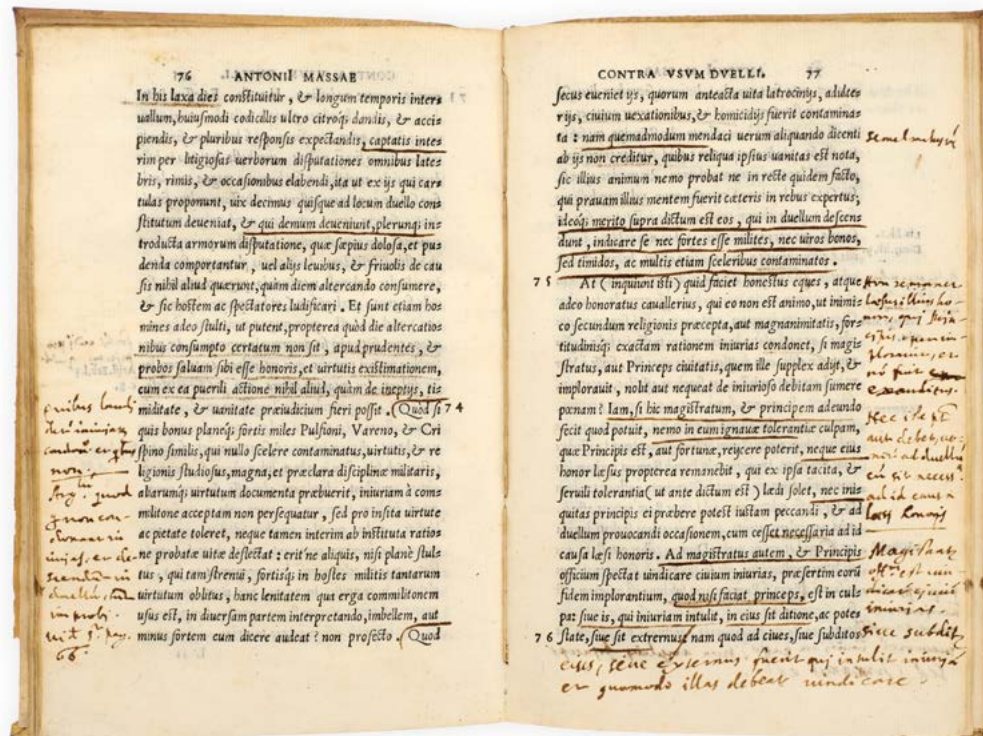 76 ANTONII MASSAE
In his laxa dies constituitur, & longum temporis inter-
uallum, huiusmodi codicillis ultro citroq; dandis, & acci-
piendis, & pluribus responsis expectandis, captatis inte-
rim per litigiosas uerborum disputationes omnibus late-
bris, rimis, & occasionibus elabendi, ita ut ex ijs qui car-
tulas proponunt, uix decimus quisque ad locum duello con-
stitutum deueniat, & qui demum deueniunt, plerunq; in-
troducta armorum disputatione, quæ sæpius dolosa, et pu-
denda comportantur, uel alijs leuibus, & friuolis de cau
sis nihil aliud quærunt, quàm diem altercando consumere,
& sic hostem ac spectatores ludificari. Et sunt etiam ho-
mines adeo stulti, ut putent, propterea quòd die altercatio-
nibus consumpto certatum non sit, apud prudentes, &
probos saluam sibi esse honoris, et uirtutis existimationem,
cum ex ea puerili actione nihil aliud, quàm de ineptijs, ti-
miditate, & uanitate præiudicium fieri possit. (Quòd si 74
quis bonus planeq; fortis miles Pulfioni, Vareno, & Cri
spino similis, qui nullo scelere contaminatus, uirtutis, & re
ligionis studiosus, magna, et præclara disciplinæ militaris,
aliarumq; uirtutum documenta præbuerit, iniuriam à com-
militone acceptam non persequatur, sed pro insita uirtute
ac pietate toleret, neque tamen interim ab instituta ratio-
ne probatæ uitæ deflectat: erit'ne aliquis, nisi planè stul-
tus, qui tam strenui, fortisq; in hostes militis tantarum
uirtutum oblitus, hanc lenitatem qua erga commilitonem
usus est, in diuersam partem interpretando, imbellem, aut
minus fortem eum dicere audeat? non profecto. (Quod
non
quod
66.
CONTRA VSVM DVELLI. 77
secus eueniet ijs, quorum anteacta uita latrocinijs, adulte-
rijs, ciuium uexationibus, & homicidijs fuerit contamina-
ta: nam quemadmodum mendaci uerum aliquando dicenti
ab ijs non creditur, quibus reliqua ipsius uanitas est nota,
sic illius animum nemo probat ne in recte quidem facto,
qui prauam illius mentem fuerit cæteris in rebus expertus;
ideoq; merito supra dictum est eos, qui in duellum descen
dunt, indicare se nec fortes esse milites, nec uiros bonos,
sed timidos, ac multis etiam sceleribus contaminatos.
75 At (inquiunt isti) quid faciet honestus eques, atque
adeo honoratus cauallerius, qui eo non est animo, ut inimi-
co secundum religionis præcepta, aut magnanimitatis, for-
titudinisq; exactam rationem iniurias condonet, si magi-
stratus, aut Princeps ciuitatis, quem ille supplex adijt, &
implorauit, nolit aut nequeat de iniurioso debitam sumere
pœnam? Iam, si hic magistratum, & principem adeundo
fecit quod potuit, nemo in eum ignauæ tolerantiæ culpam,
quæ Principis est, aut fortunæ, reijcere poterit, neque eius
honor læsus propterea remanebit, qui ex ipsa tacita, &
seruili tolerantia (ut ante dictum est) lædi solet, nec ini-
quitas principis ei præbere potest iustam peccandi, & ad
duellum prouocandi occasionem, cum cesset necessaria ad id
causa læsi honoris. Ad magistratus autem, & Principis
officium spectat uindicare ciuium iniurias, præsertim eorū
fidem implorantium, quod nisi faciat princeps, est in cul-
pa: siue is, qui iniuriam intulit, in eius sit ditione, ac potes
76 state, siue sit externus: nam quod ad ciues, siue subditos
exauditus.
iniurias.
siue subditus
eius, siue externus fuerit qui intulit iniuriā
et quomodo illas debeat uindicare.